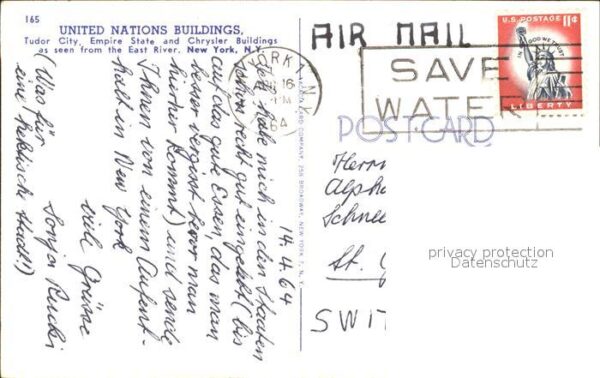 165
UNITED NATIONS BUILDINGS,
Tudor City, Empire State and Chrysler Buildings
as seen from the East River. New York, N.Y.
14.4.64
Ich habe mich in den Staaten
schon recht gut eingelebt (bis
auf das gute Essen, das man
besser vergisst bevor man
hierher kommt) und sende
Ihnen von einem Aufent-
halt in New York
viele Grüsse
Sonja
(Was für
eine hektische Stadt!)
AIR MAIL
U.S. POSTAGE 11¢
IN GOD WE TRUST
LIBERTY
YORK, N.Y.
16
PM
64
SAVE
WATER
POSTCARD
Herrn
Alph
Schnee
St. G
SWIT
privacy protection
Datenschutz